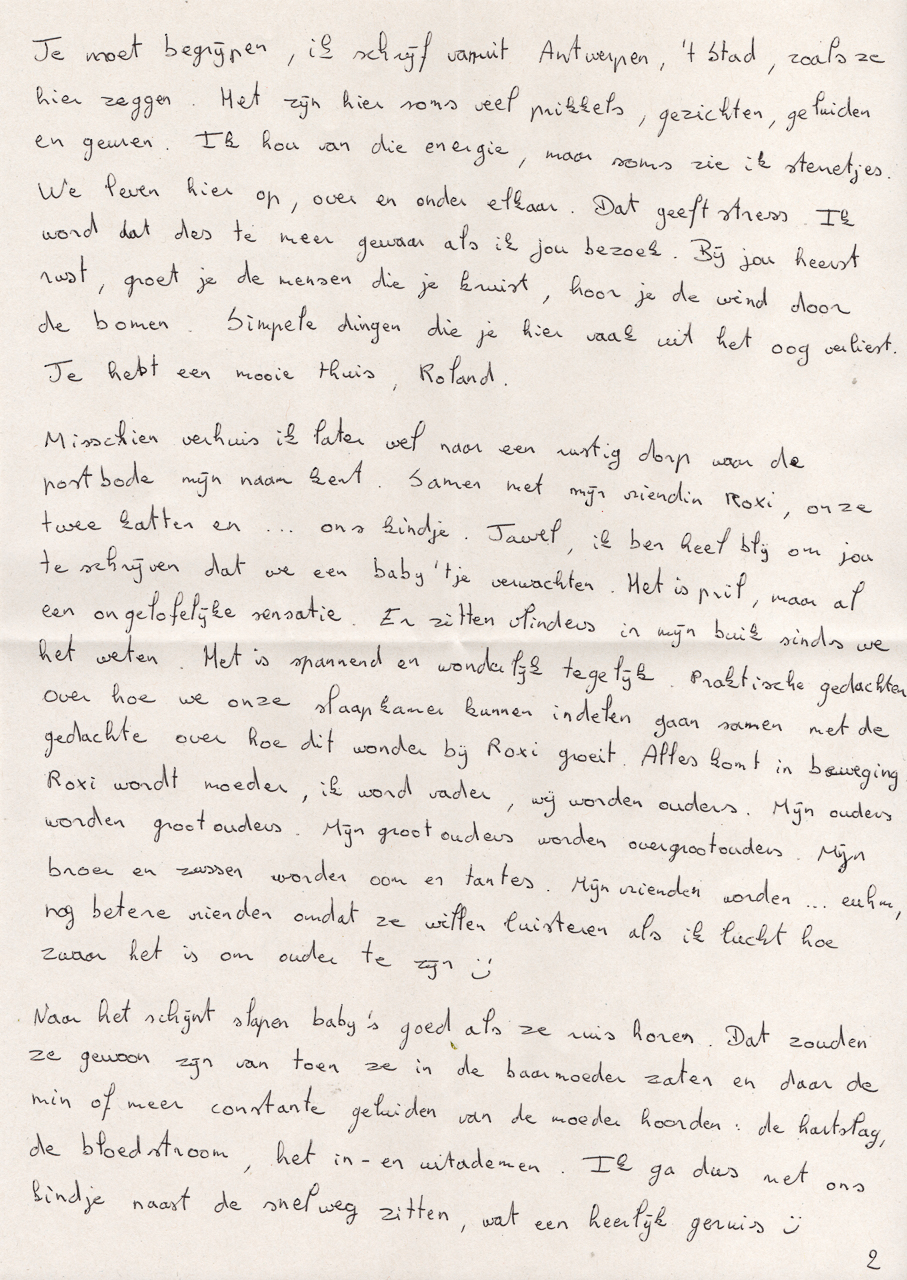 Je moet begrijpen, ik schrijf vanuit Antwerpen, 't Stad, zoals ze
hier zeggen. Het zijn hier soms veel prikkels, gezichten, geluiden
en geuren. Ik hou van die energie, maar soms zie ik sterretjes.
We leven hier op, over en onder elkaar. Dat geeft stress. Ik
word dat des te meer gewaar als ik jou bezoek. Bij jou heerst
rust, groet je de mensen die je kruist, hoor je de wind door
de bomen. Simpele dingen die je hier vaak uit het oog verliest.
Je hebt een mooie thuis, Roland.
Misschien verhuis ik later wel naar een rustig dorp waar de
postbode mijn naam kent. Samen met mijn vriendin Roxi, onze
twee katten en ... ons kindje. Jawel, ik ben heel blij om jou
te schrijven dat we een baby'tje verwachten. Het is pril, maar al
een ongelofelijke sensatie. Er zitten vlinders in mijn buik sinds we
het weten. Het is spannend en wonderlijk tegelijk. Praktische gedachten
over hoe we onze slaapkamer kunnen indelen gaan samen met de
gedachte over hoe dit wonder bij Roxi groeit. Alles komt in beweging
Roxi wordt moeder, ik word vader, wij worden ouders. Mijn ouders
worden grootouders. Mijn grootouders worden overgrootouders. Mijn
broer en zussen worden oom en tantes. Mijn vrienden worden ... euhm,
nog betere vrienden omdat ze willen luisteren als ik lucht hoe
zwaar het is om ouder te zijn :)
Naar het schijnt slapen baby's goed als ze ruis horen. Dat zouden
ze gewoon zijn van toen ze in de baarmoeder zaten en daar de
min of meer constante geluiden van de moeder hoorden: de hartslag,
de bloedstroom, het in- en uitademen. Ik ga dus met ons
kindje naast de snelweg zitten, wat een heerlijk geruis :)
2